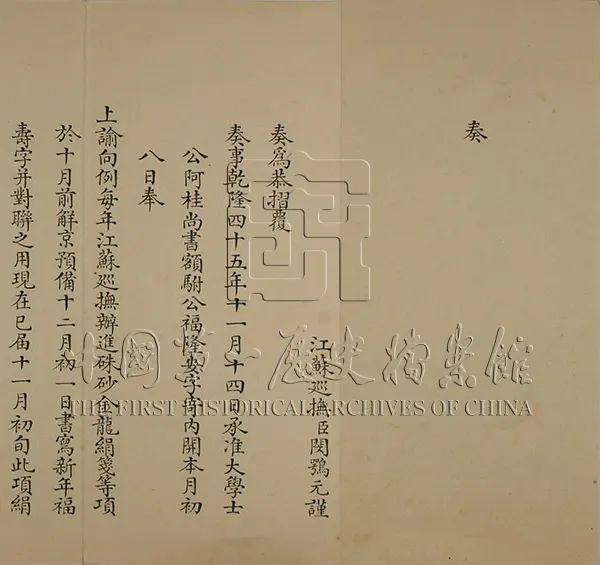 奏
江蘇巡撫臣閔鶚元謹
奏爲恭摺覆
奏事乾隆四十五年十一月十四日承准大學士
公阿桂尚書額駙公福隆安字寄內開本月初
八日奉
上諭向例每年江蘇巡撫辦進硃砂金龍絹箋等項
於十月前解京預備十二月初一日書寫新年福
壽字并對聯之用現在已届十一月初旬此項絹
中國第一歷史檔案館
THE FIRST HISTORICAL ARCHIVES OF CHINA